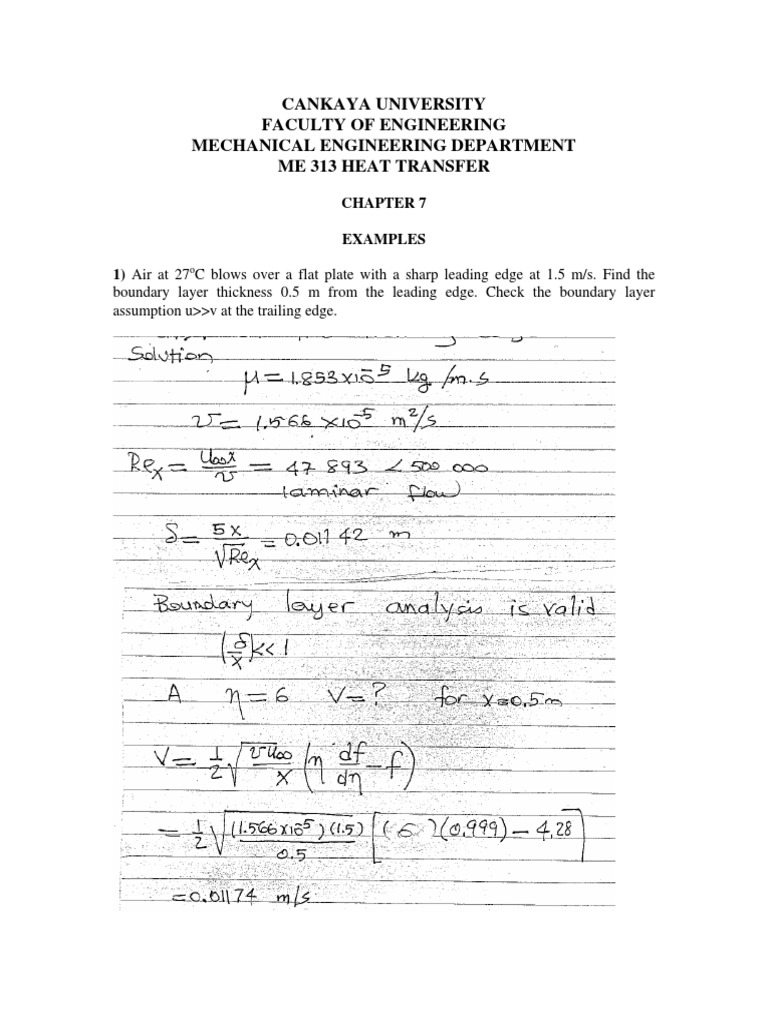 CANKAYA UNIVERSITY
FACULTY OF ENGINEERING
MECHANICAL ENGINEERING DEPARTMENT
ME 313 HEAT TRANSFER
CHAPTER 7
EXAMPLES
1) Air at 27°C blows over a flat plate with a sharp leading edge at 1.5 m/s. Find the
boundary layer thickness 0.5 m from the leading edge. Check the boundary layer
assumption u>>v at the trailing edge.
Solution
μ = 1.853x10^-5 kg/m.s
ν = 1.566 x10^-5 m²/s
Re_x = u∞x/ν = 47 893 < 500 000
laminar flow
δ = 5x/√Re_x = 0.01142 m
Boundary layer analysis is valid
(δ/x) << 1
A η = 6 V = ? for x = 0.5m
V = 1/2 √(νu∞/x) (η df/dη - f)
= 1/2 √((1.566x10^-5)(1.5)/0.5) [(6)(0.999) - 4.28]
= 0.01174 m/s